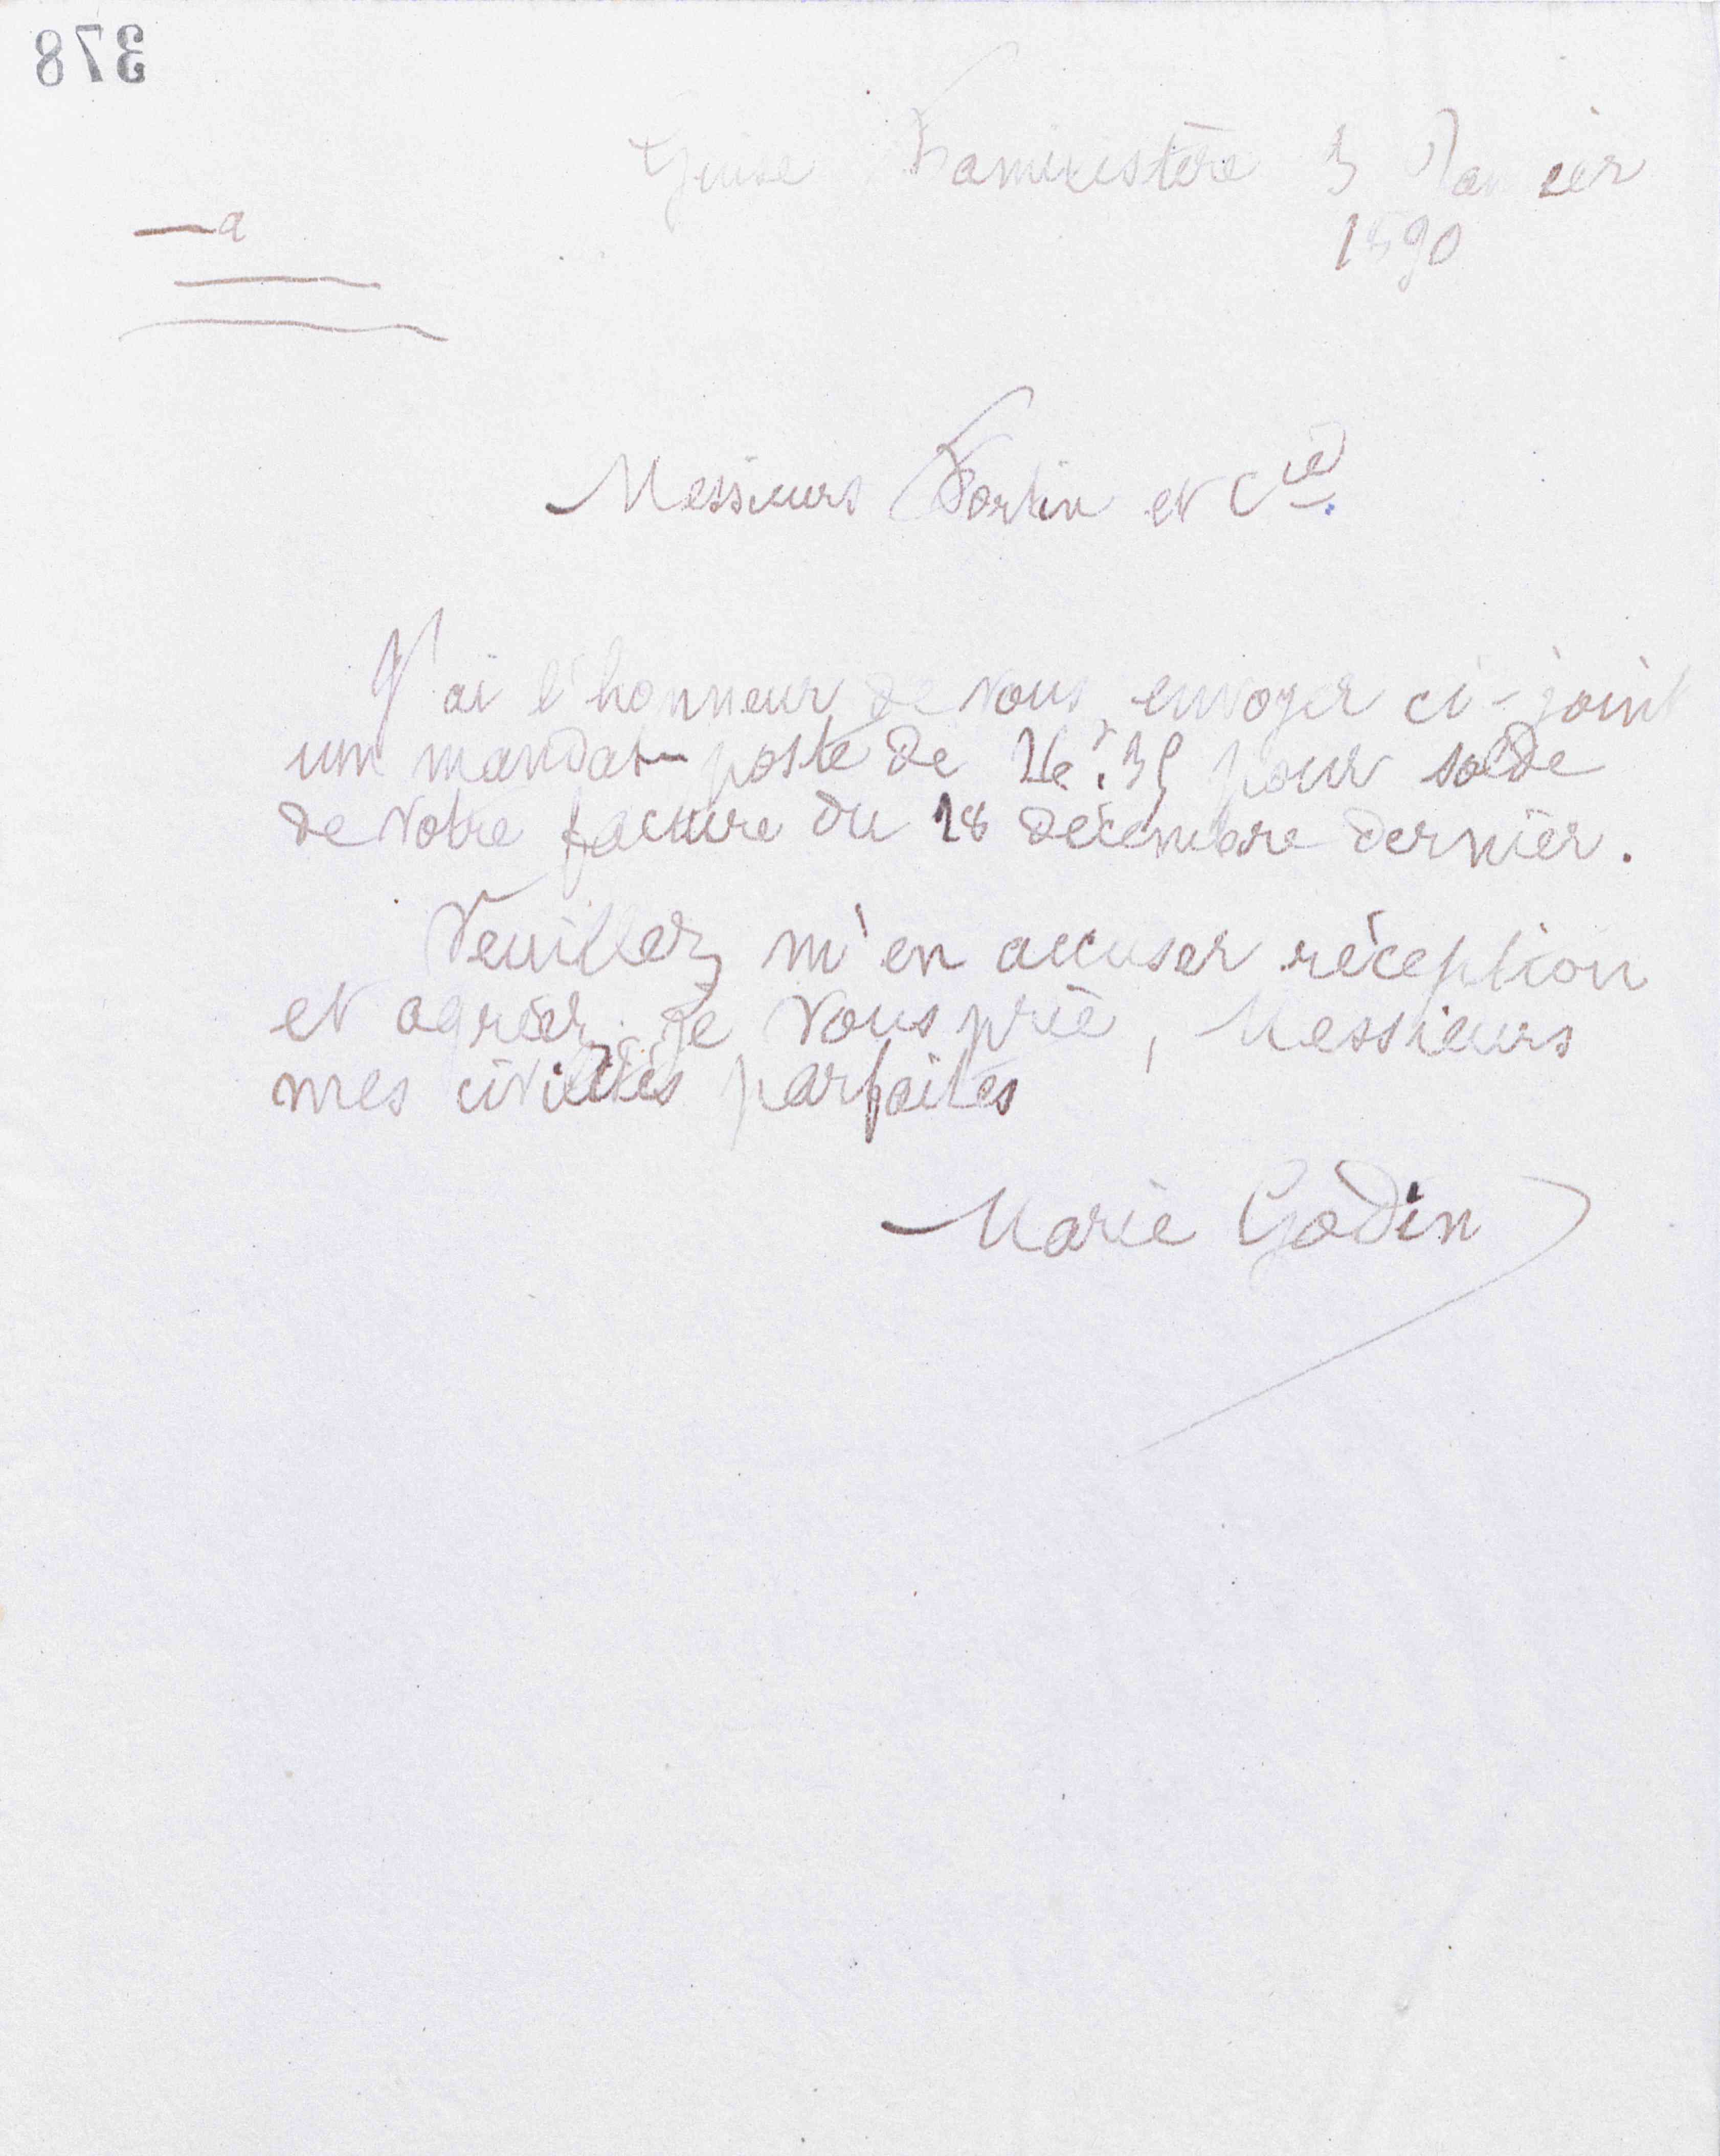 378
Guise Familistère 3 Janvier
1890
a
Messieurs Fortin et Cie.
J'ai l'honneur de vous envoyer ci-joint
un mandat-poste de 26f.35 pour solde
de votre facture du 18 décembre dernier.
Veuillez m'en accuser réception
et agréer, je vous prie, Messieurs
mes civilités parfaites
Marie Godin